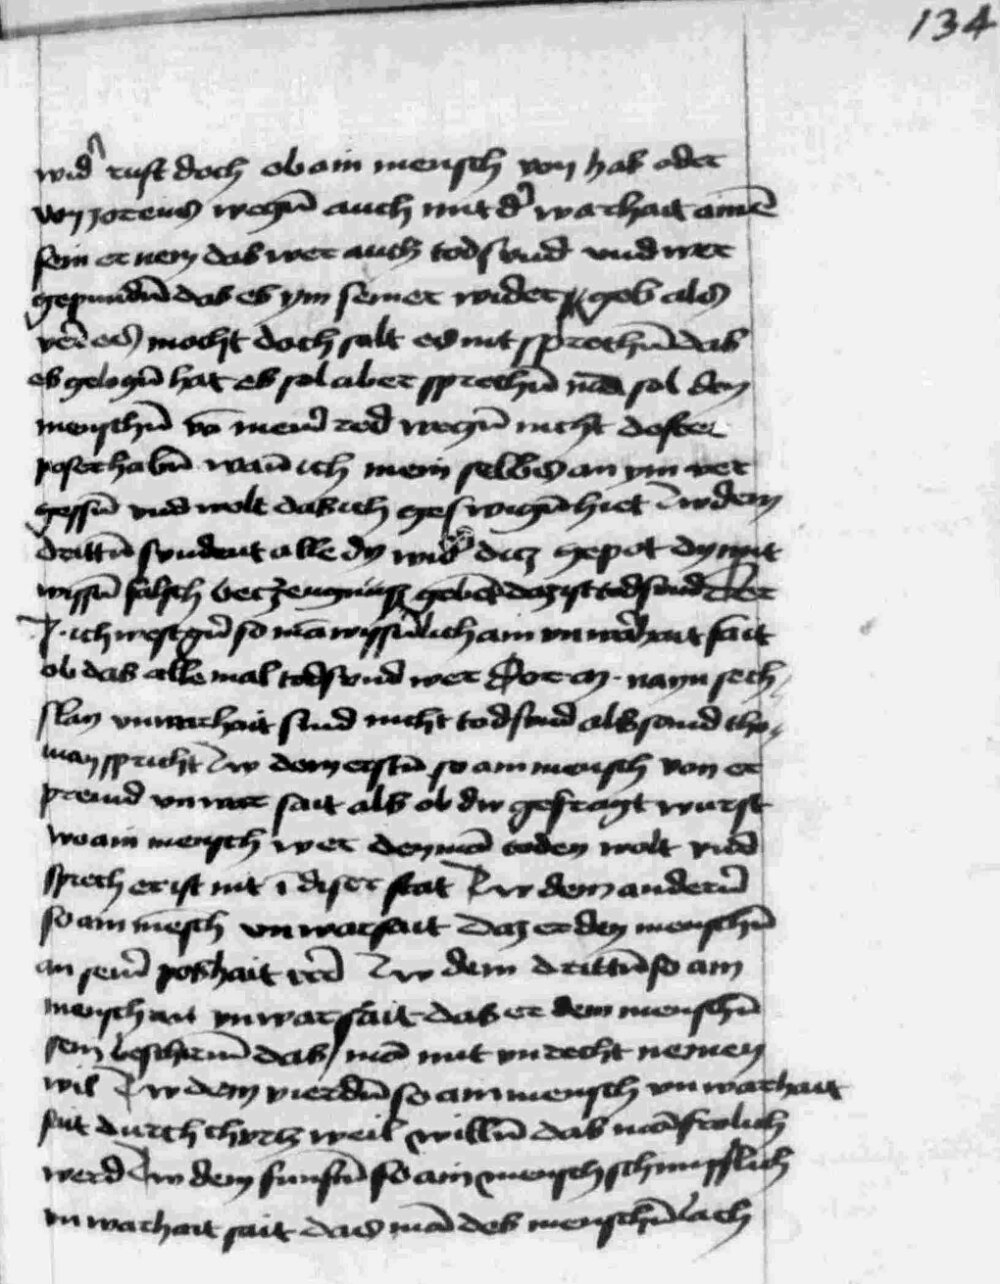 134
wid' rüft doch ob ain mensch von has oder
von zorens wegen auch mit d' warhait ainē
sein er nem das wer auch todsund und wer
gepundn̄ das es ym sein er wider geb als
ver es mocht doch solt es nit sprechn̄ das
es gelogn̄ hat es sol aber sprechn̄ mā sol dem
menschn̄ vō mein' red wegn̄ nicht dester
poser habn̄ wan̄ ich mein selbs an ym ver
gessn̄ und wolt das ich geswign̄ hiet Czw dem
drittn̄ sundent alle dy wid' diz gepot dy mit
wissn̄ falsch geczeugnüss gebn̄ daz ist todsund Der
J. ich west gern̄ so mā wyssn̄lich ain unwarhait sait
ob das alle mal todsund wer Der M. nayn sech
slay unwarhait sind nicht todsund als sand tho
man spricht Czw dem erstn̄ so ain mensch von er
preind unwar sait als ob dw gefragt wurst
wo ain mensch wer den mā toden wolt und
sprech er ist nit ī diser stat Czw dem andern̄
so ain mēsch unwar sait daz er den menschn̄
an sein' poshait irr Czw dem drittn̄ so ain
mensch ain unwar sait das er dem menschn̄
sein beschirm̄ das mā mit unrecht nemen
wil Czw dem vierdn̄ so ain mensch unwarhait
sait durch churcz weil willn̄ das mā frolich
werd Czw dem funftn̄ so ain mensch schimpflich
unwarhait sait das mā des menschn̄ lach